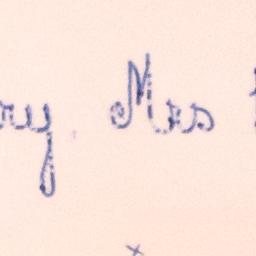 ry. Mrs